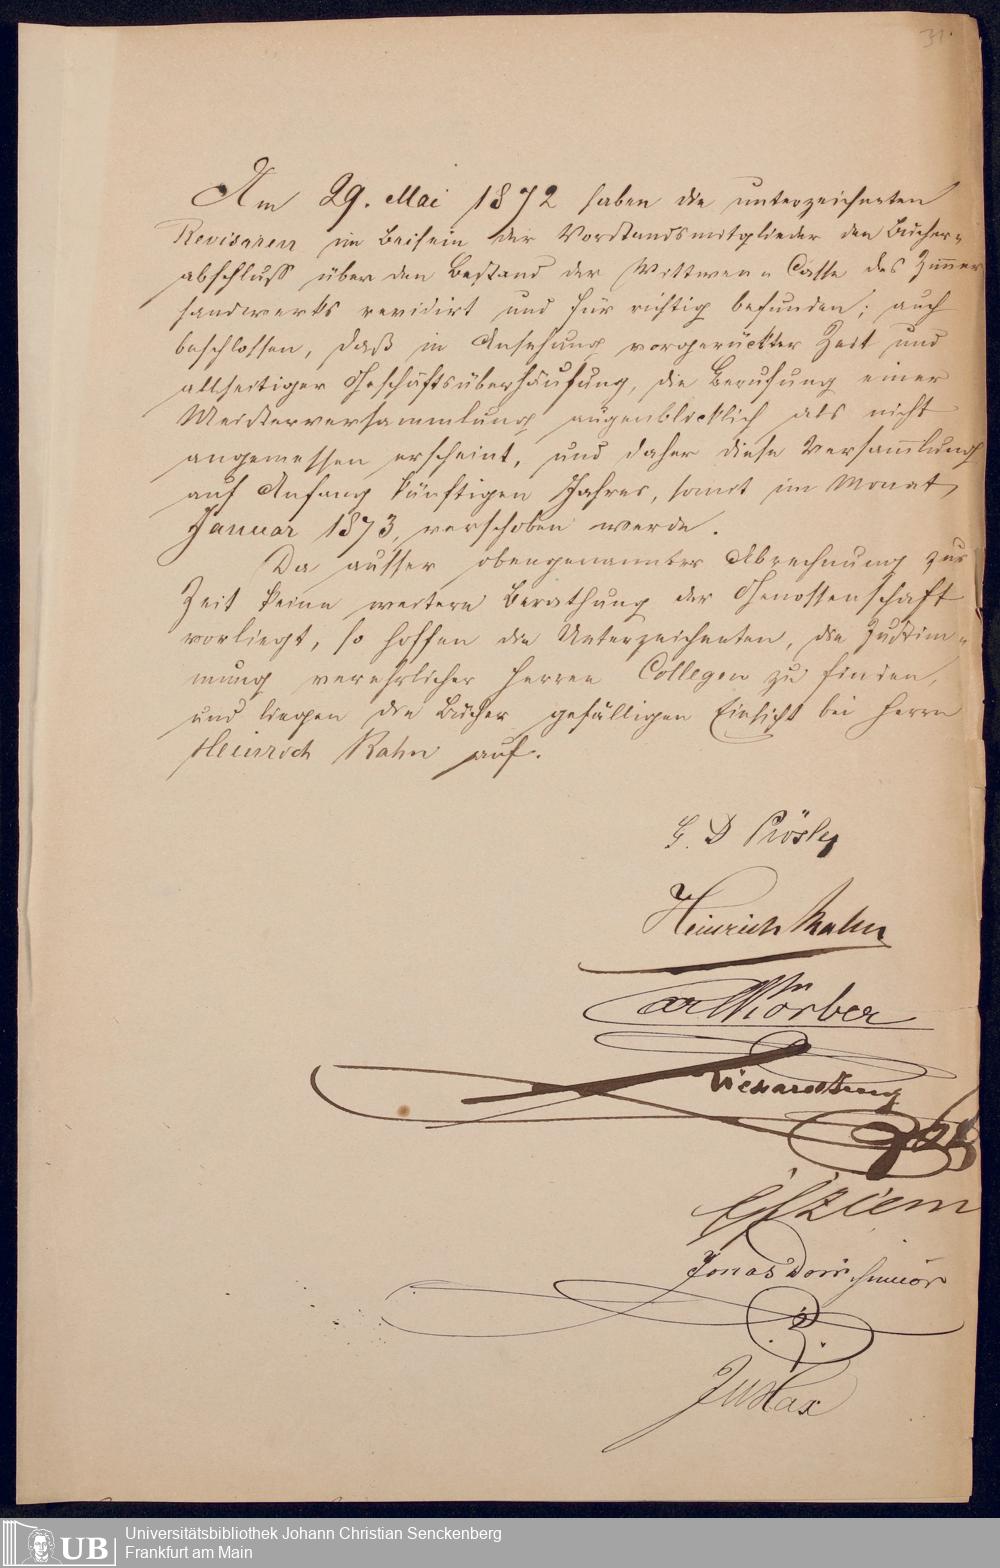 31.
Am 29. Mai 1872 haben die unterzeichneten
Revisoren im Beisein der Vorstandsmitglieder den Bücher=
abschluss über den Bestand der Wittwen=Casse des Zimmer
handwerks revidirt und für richtig befunden; auch
beschlossen, daß in Ansehung vorgerückter Zeit und
allseitiger Geschäftsüberhäufung, die Berufung einer
Meisterversammlung augenblicklich als nicht
angemessen erscheint, und daher diese Versam̅lung
auf Anfang künftigen Jahres, somit im Monat
Januar 1873, verschoben werde.
Da ausser obengenannter Abrechnung zur
Zeit keine weitere Berathung der Genossenschaft
vorliegt, so hoffen die Unterzeichneten, die Zustim=
mung verehrlicher Herren Collegen zu finden,
und liegen die Bücher gefälligen Einsicht bei Herrn
Heinrich Rahn auf.
Heinrich Rahn
Carl Körber
Jonas Dorr junior
Universitätsbibliothek Johann Christian Senckenberg
Frankfurt am Main
UB